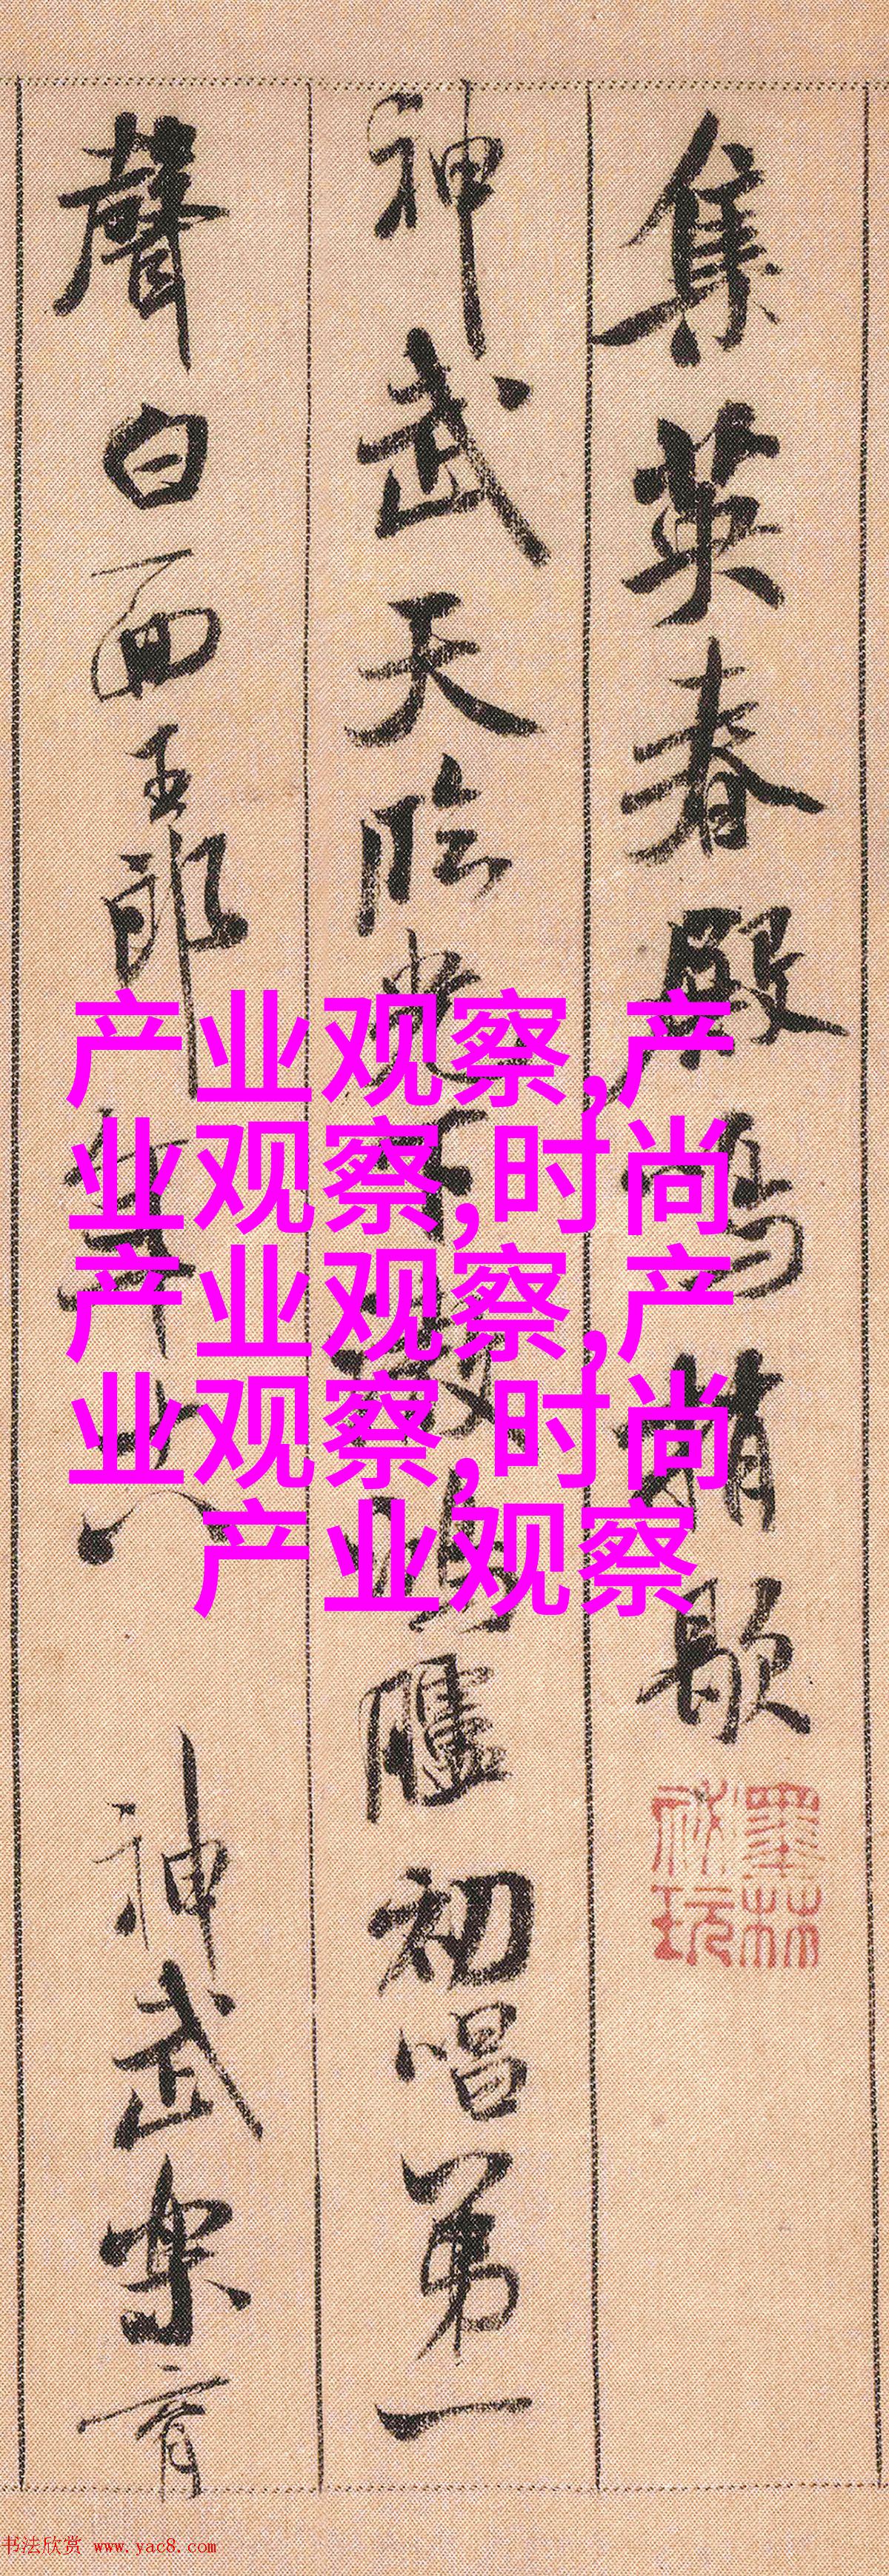 集英春殿鳴捎歇
神武天臨光下澈鴻臚初唱第一
聲白面玉郎年十八 神武樂育
墨林
祕玩
产业观察,产
业观察,时尚
产业观察,产
业观察,时尚
产业观察
书法欣赏 www.yac8.com